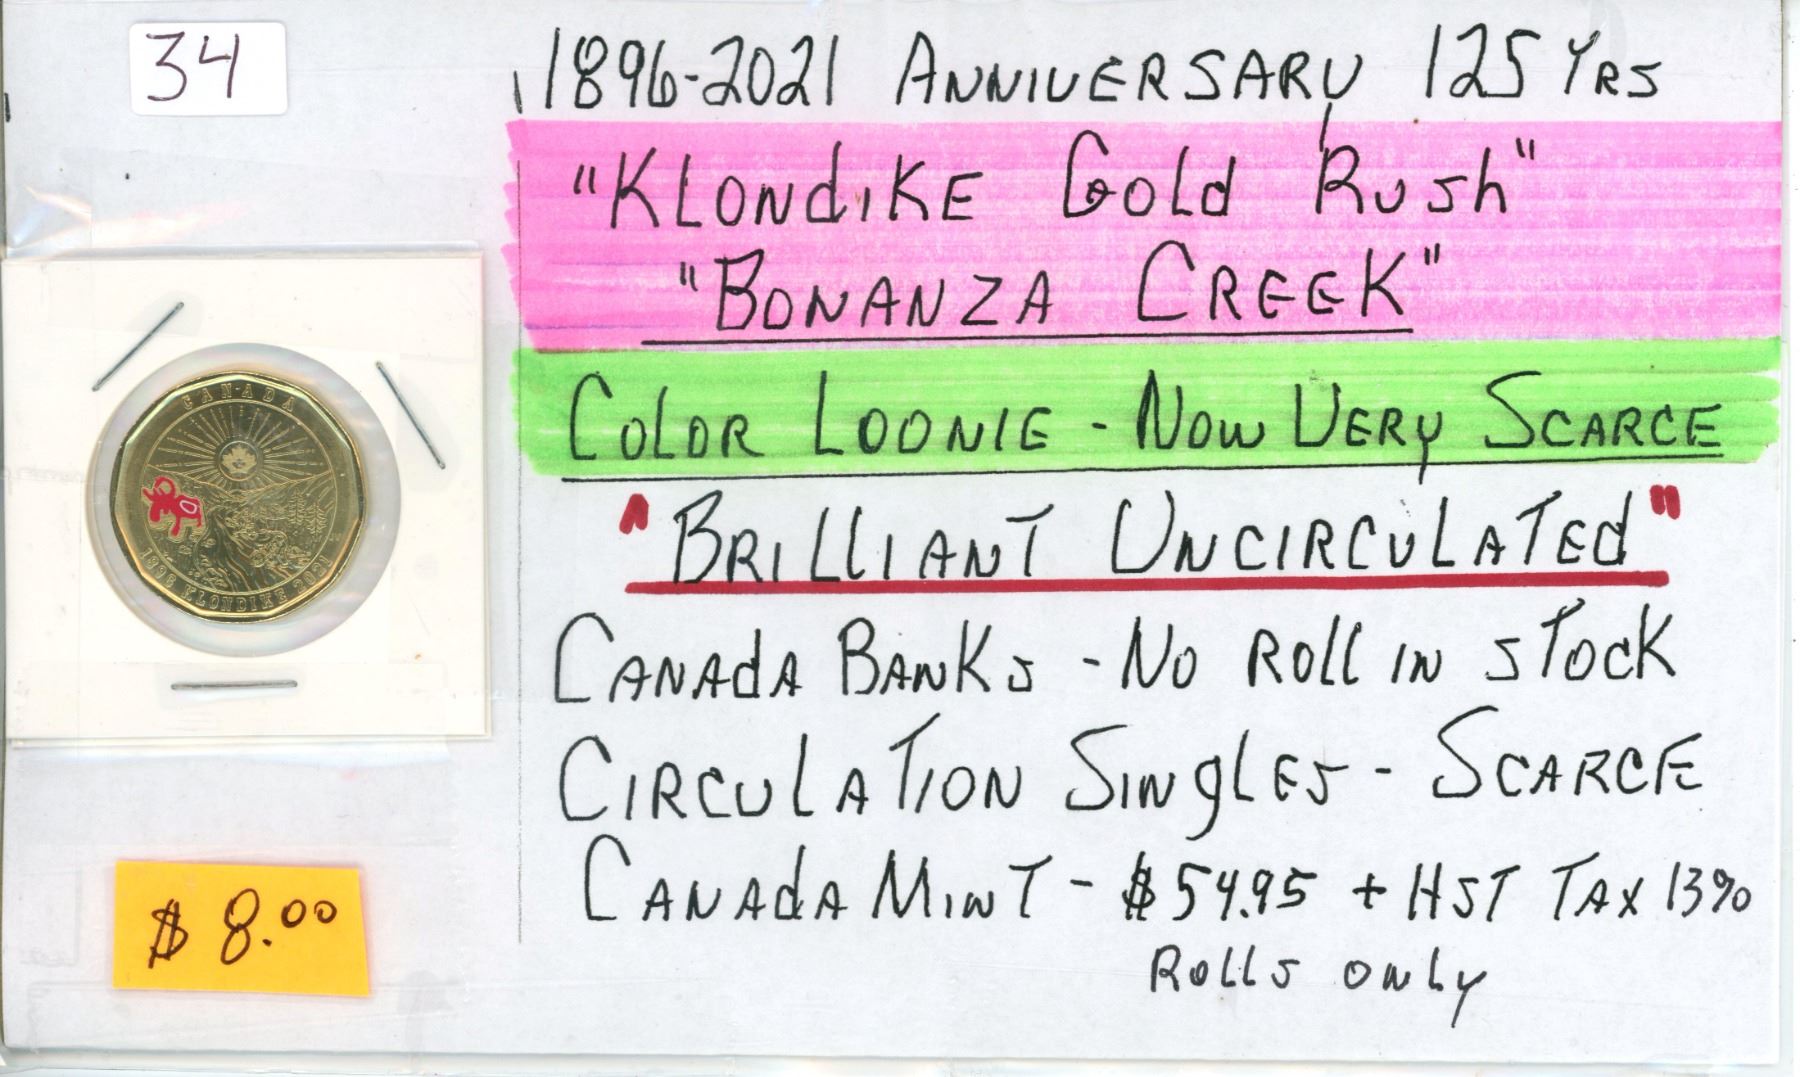 34
1896-2021 ANNIVERSARY 125 YRS
"KLONdiKE Gold Rush"
"BONANZA CREEK"
COLOR LOONIE - NOW VERY SCARCE
"BRILLIANT UNCIRCULATEd"
CANAdA BANKS - NO ROLL IN STOCK
CIRCULATION SINgLES - SCARCE
CANAdA MINT - $54.95 + HST TAX 13%
ROLLS ONLY
CANADA
1896 KLONDIKE 2021
$8.00